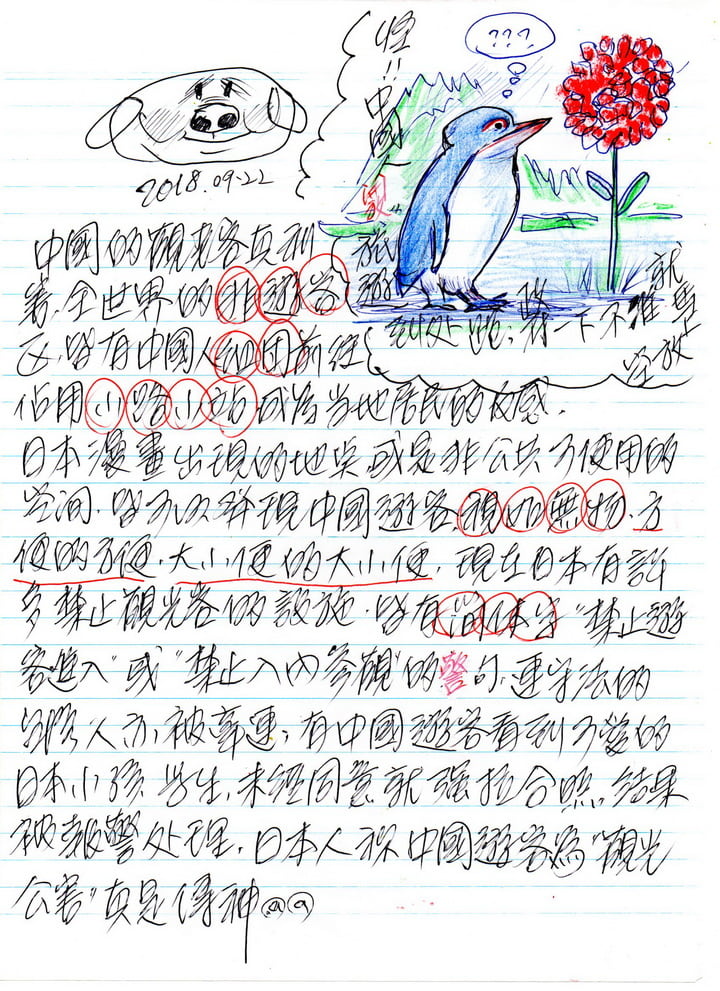 ???
怪!!中國一
2018.09.22
旅遊
到处跑,
中國的觀光客真利
害.全世界的非遊客
区,皆有中國人組团前往
佔用小路小站成為当地居民的反感.
日本漫畫出現的地点或是非公共方使用的
空间.皆可以發現中國遊客,視如無物.方
便的方便.大小便的大小便.現在日本有許
多禁止觀光客的設施.皆有简体字"禁止遊
客進入"或"禁止入內參觀"的警句,連守法的
人亦被牽連;有中國遊客看到可愛的
日本小孩学生,未經同意就强拉合照.結果
被報警处理.日本人称中國遊客為"觀光
公害"真是傳神@@